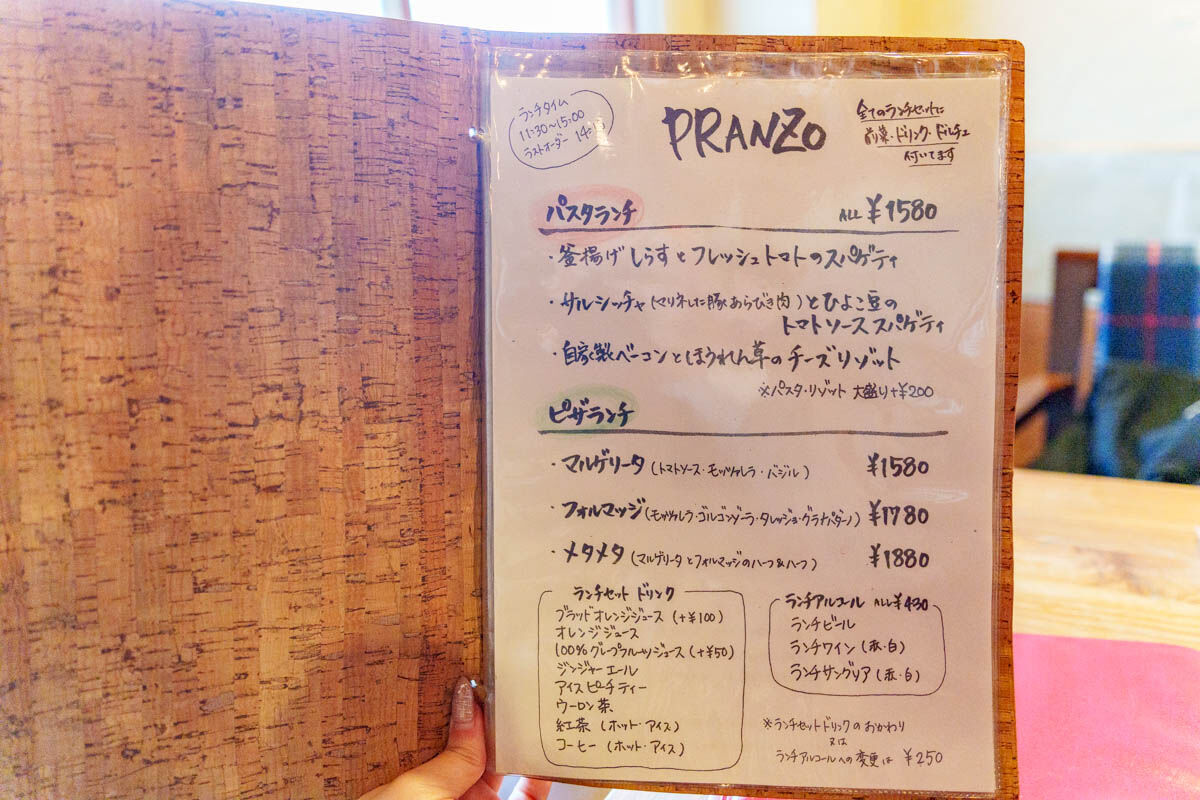 ランチタイム
11:30〜15:00
ラストオーダー 14:
PRANZO
全てのランチセットに
前菜・ドリンク・ドルチェ
付いてます
パスタランチ ALL ¥1580
・釜揚げしらすとフレッシュトマトのスパゲティ
・サルシッチャ(マリネした豚あらびき肉)とひよこ豆の
トマトソーススパゲティ
・自家製ベーコンとほうれん草のチーズリゾット
※パスタ・リゾット 大盛り+¥200
ピザランチ
・マルゲリータ(トマトソース・モッツァレラ・バジル) ¥1580
・フォルマッジ(モッツァレラ・ゴルゴンゾーラ・タレッジョ・グラナパダーノ) ¥1780
・メタメタ(マルゲリータとフォルマッジのハーフ&ハーフ) ¥1880
ランチセット ドリンク
ブラッドオレンジジュース(+¥100)
オレンジジュース
100%グレープフルーツジュース(+¥50)
ジンジャーエール
アイスピーチティー
ウーロン茶
紅茶(ホット・アイス)
コーヒー(ホット・アイス)
ランチアルコール ALL¥430
ランチビール
ランチワイン(赤・白)
ランチサングリア(赤・白)
※ランチセットドリンクのおかわり
又は
ランチアルコールへの変更は ¥250